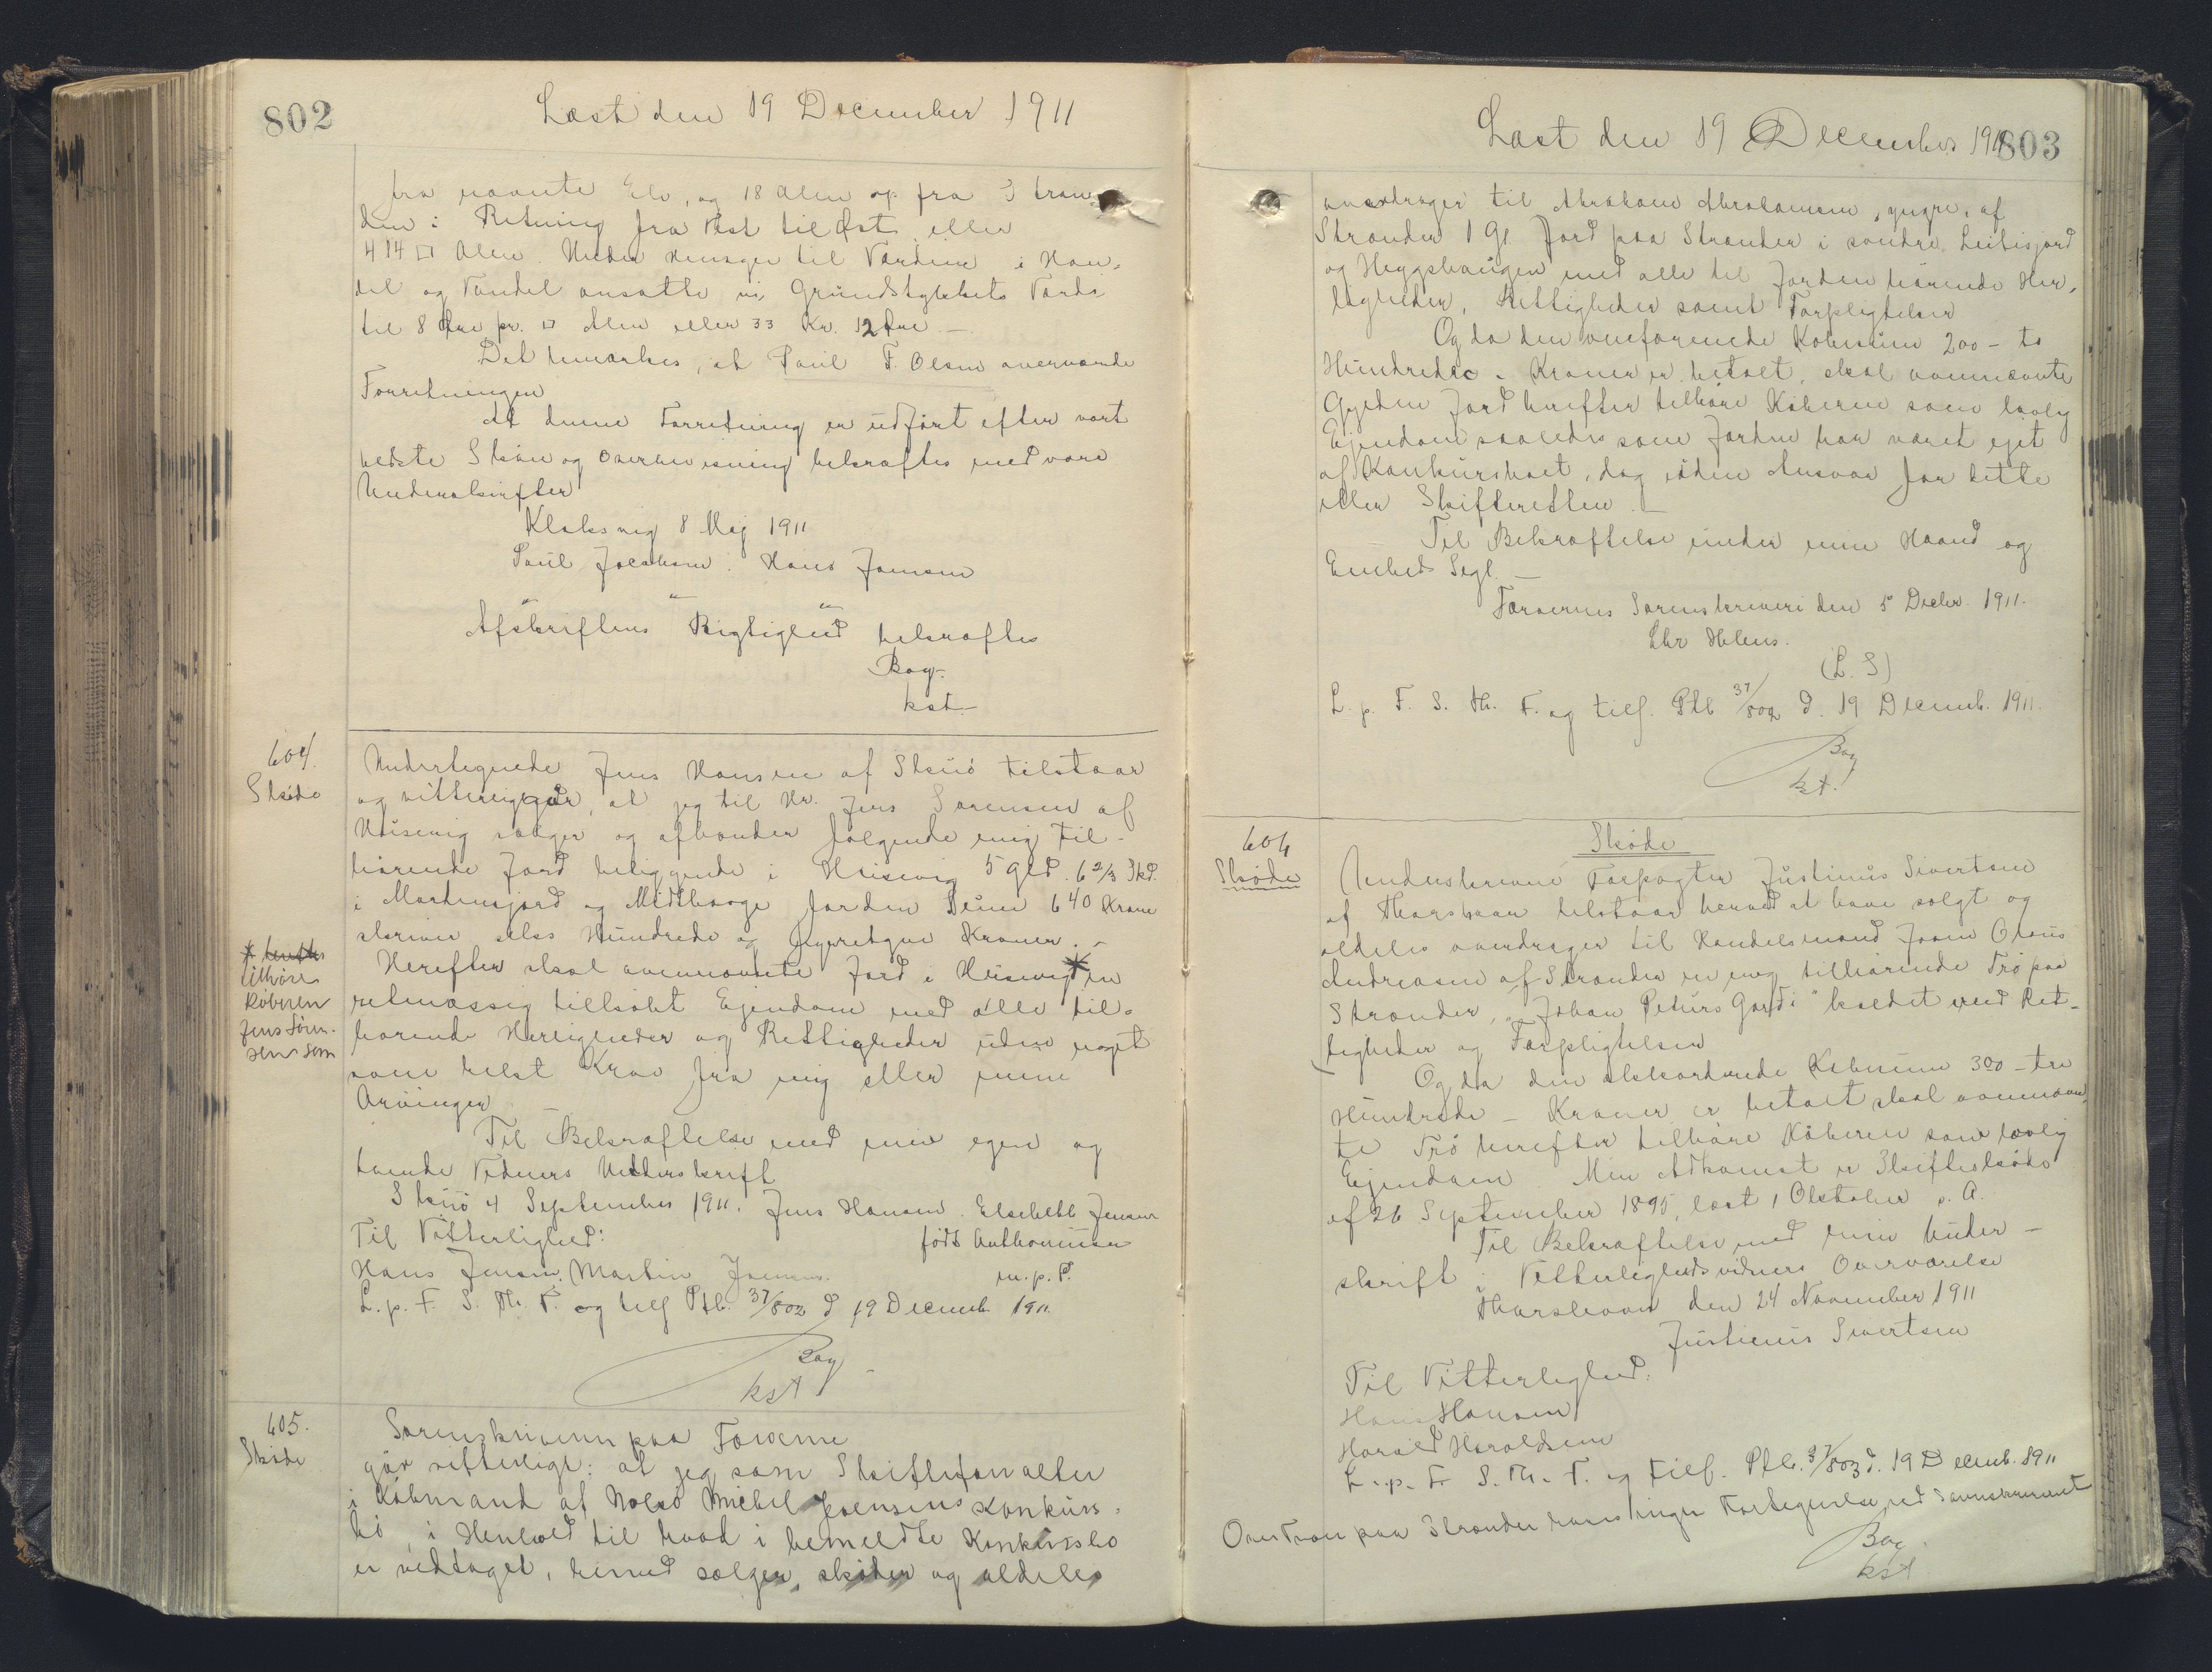 802
Læst den 19 December 1911
fra nævnte Elv, og 18 Alen op fra Stran-
den i Retning fra Vest til Øst eller
414 □ Alen. Under Hensyn til Værdien i Han-
del og Vandel ansatte vi Grundstykkets Værdi
til 8 Øre pr. □ Alen eller 33 Kr. 12 Øre. –
Det bemærkes, at Poul F. Olsen overværede
Forretningen
At denne Forretning er udført efter vort
bedste Skøn og Overbevisning bekræftes med vore
Underskrifter
Klaksvig 8 Maj 1911
Poul Joensen. Hans Jensen
Afskriftens Rigtighed bekræftes
Bay.
kst.
604.
Skøde
Undertegnede Jens Hansen af Skuø tilstaar
og vitterliggør, at jeg til Hr. Jens Sørensen af
Husevig sælger og afhænder følgende mig til-
hørende Jord beliggende i Husevig 5 Gld. 6 2/3 Skd.
i Mortensjord og Midthauge for den Sum 640 Krone
skriver seks Hundrede og fyrretyve Kroner. –
Herefter skal ovennævnte Jord i Husevig * en
retmæssig tilkøbt Ejendom med alle til-
hørende Herligheder og Rettigheder uden noget
som helst Krav fra mig eller mine
Arvinger
* herefter
tilhøre
Køberen
Jens Søren-
sen som
Til Bekræftelse med min egen og
tvende Vidners Underskrift
Skuø 4 September 1911. Jens Hansen. Elsebeth Jensen
Til Vitterlighed: født Anthoniussen
Hans Jensen. Martin Joensen. m. p. P.
L. p. F. S. Th. F. og tilf. Ptb. 37/802 d 19 Decemb 1911.
Bay
kst
605.
Skøde
Sorenskriveren paa Færøerne
gør vitterligt: at jeg som Skifteforvalter
i Købmand af Nolsø Michel Joensens Konkurs-
bo, i Henhold til hvad i bemeldte Konkursbo
er vedtaget, herved sælger, skøder og aldeles
Læst den 19 December 1911
803
overdrager til Abraham Abrahamsen, yngre, af
Strænder 1 Gl. Jord paa Strænder i søndre Leitisjord
og Heygshaugen med alle til Jorden hørende Her-
ligheder, Rettigheder samt Forpligtelser
Og da den omforenede Købesum 200 – to
Hundrede – Kroner er betalt, skal ovennævnte
Gylden Jord herefter tilhøre Køberen som lovlig
Ejendom saaledes som Jorden har været ejet
af Konkursboet, dog uden Ansvar for dette
eller Skifteretten. –
Til Bekræftelse under min Haand og
Embeds Segl. –
Færøernes Sorenskriveri den 5 Decbr. 1911.
Chr Helms.
(L. S)
L. p. F. S. Th. F. og tilf. Ptb 37/802 d. 19 Decemb. 1911.
Bay
kst.
606
Skøde
Skøde
Underskrevne Forpagter Justinus Sivertsen
af Thorshavn tilstaar herved at have solgt og
aldeles overdrager til Handelsmand Joen Olaus
Andreasen af Strænder en mig tilhørende Trø paa
Strænder, „Johan Peturs Gardi“ kaldet med Ret-
tigheder og Forpligtelser
Og da den akkorderede Købesum 300 – tre
Hundrede – Kroner er betalt skal ovennævn-
te Trø herefter tilhøre Køberen som lovlig
Ejendom. Min Adkomst er Skifteskøde
af 26 September 1895, læst 1 Oktober s. A.
Til Bekræftelse med min Under-
skrift i Vitterlighedsvidners Overværelse
Thorshavn den 24 November 1911
Justinus Sivertsen
Til Vitterlighed:
Hans Hansen
Harald Haraldsen
L. p. F. S. Th. F. og tilf. Ptb. 37/803 d. 19 Decemb. 1911
Over Trøer paa Strænder haves ingen Fortegnelse ved Sorenskriveriet
Bay
kst